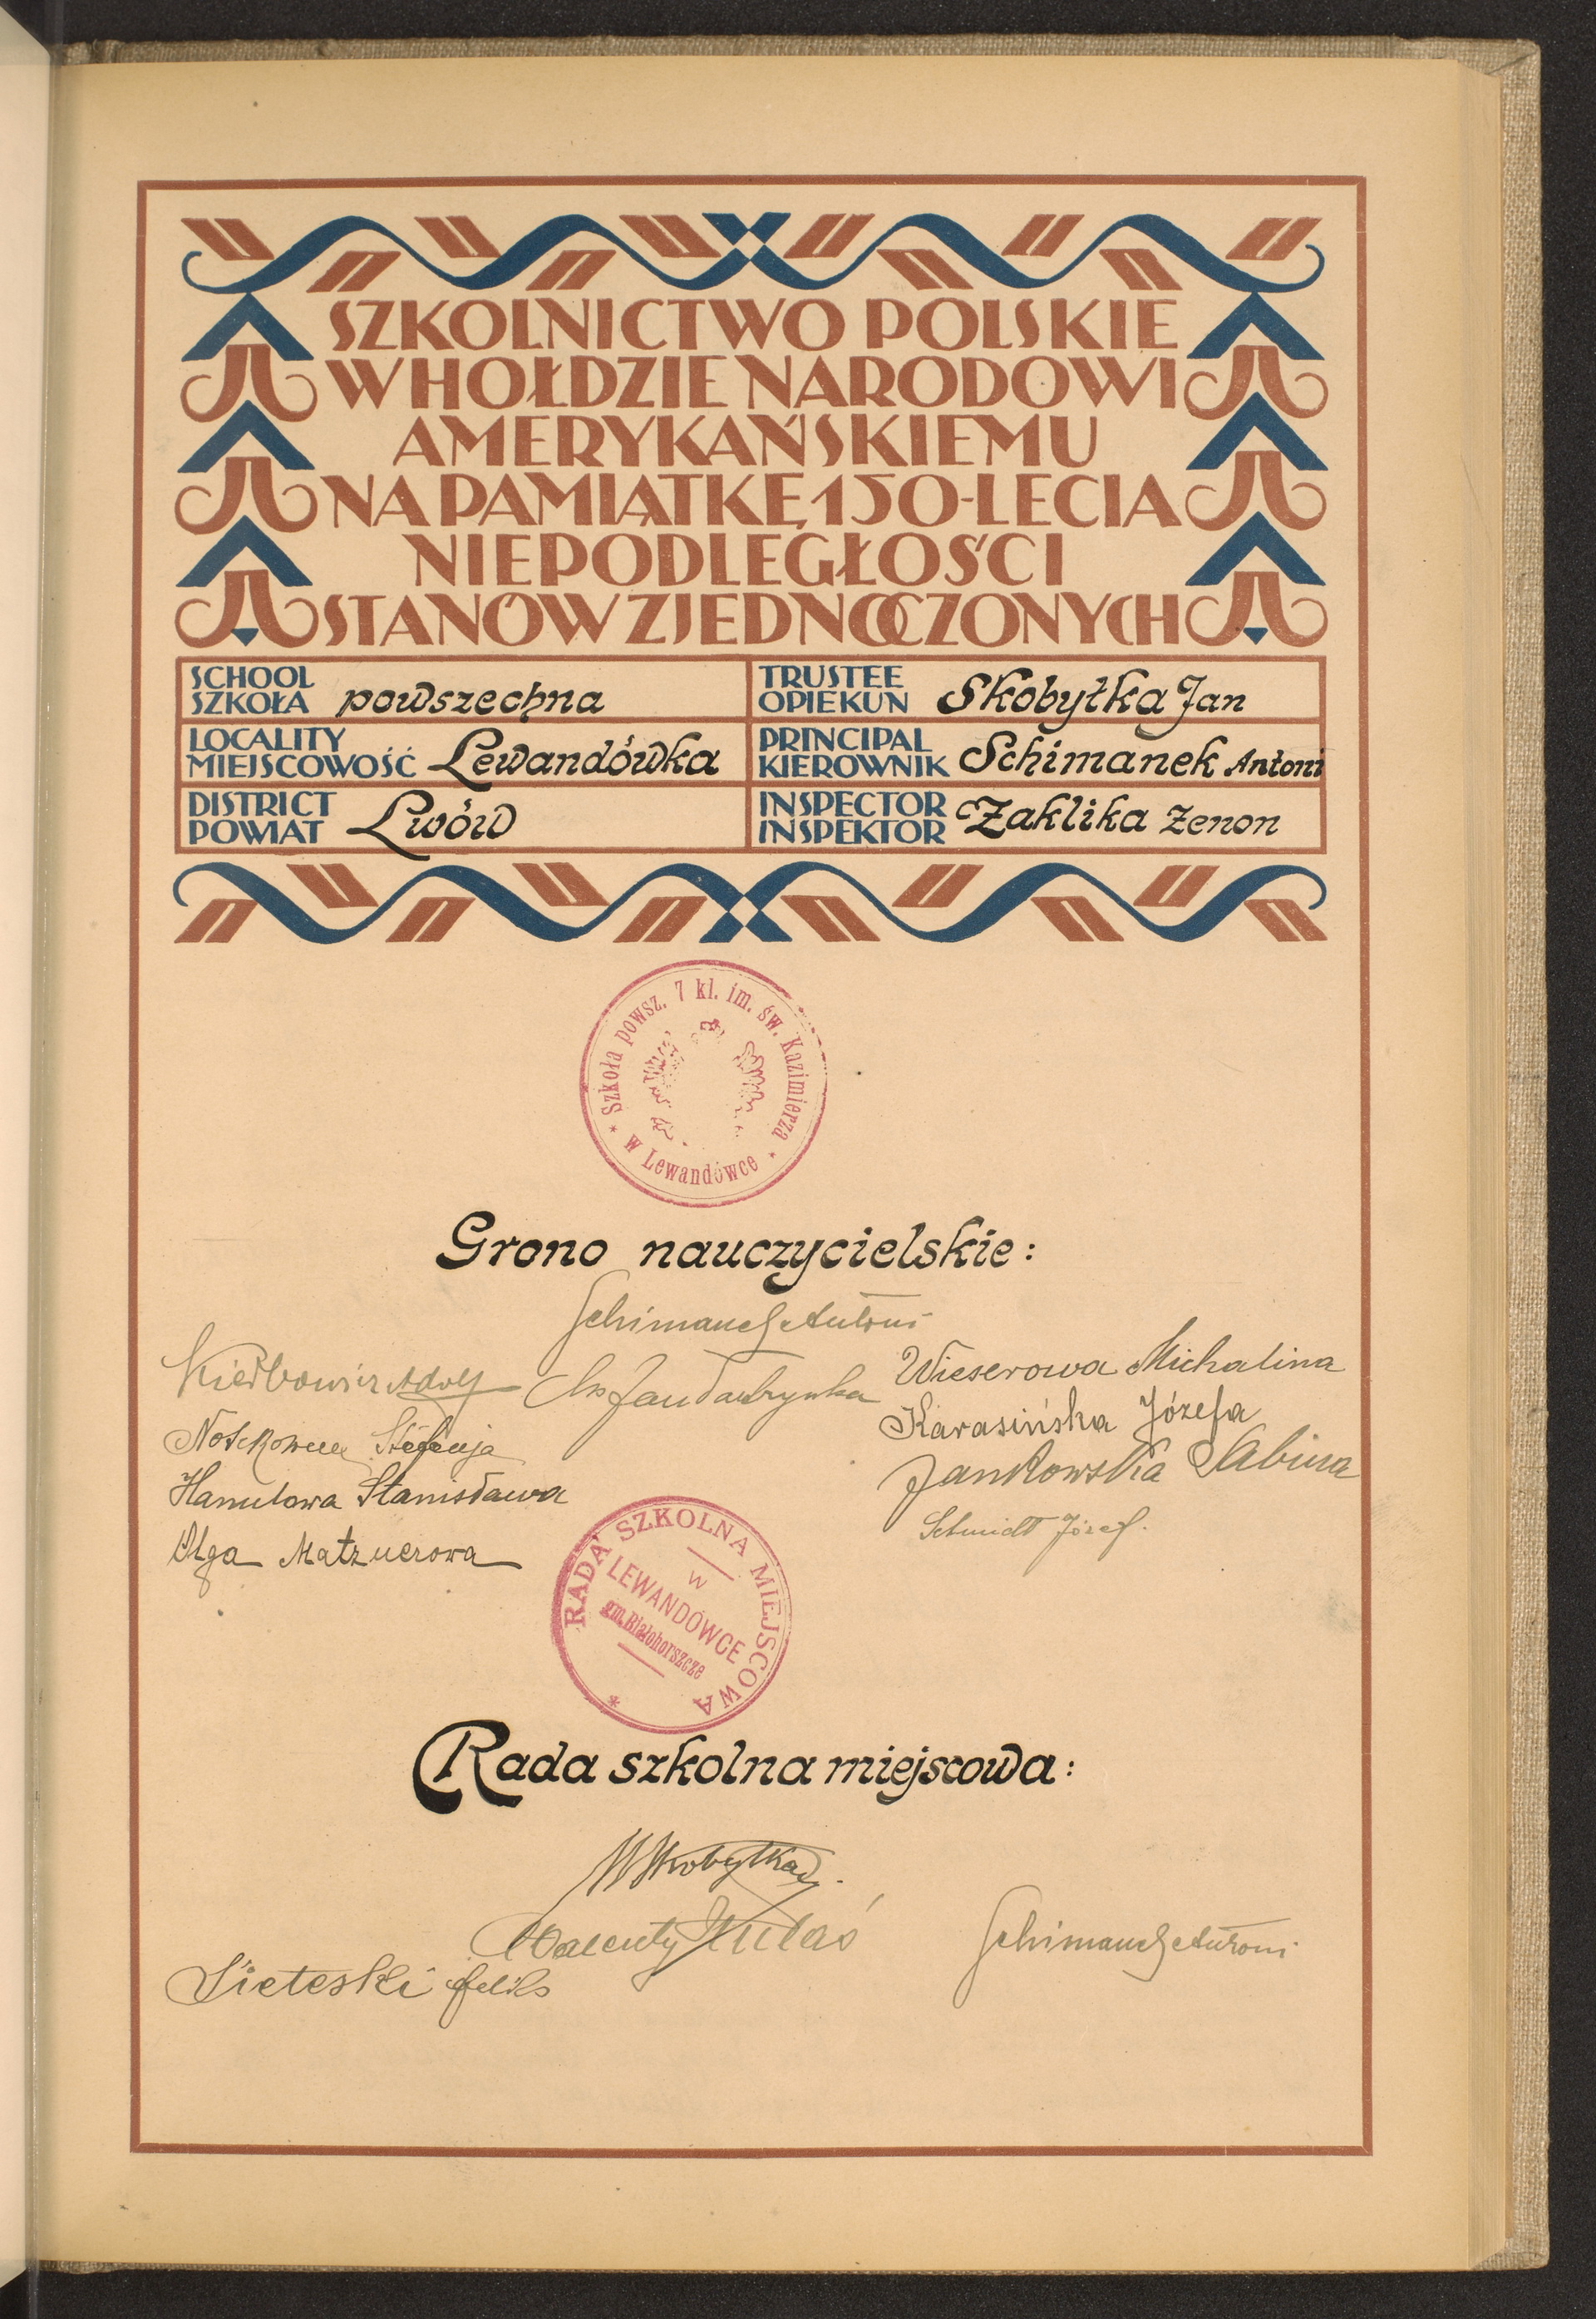 SZKOLNICTWO POLSKIE
W HOŁDZIE NARODOWI
AMERYKAŃSKIEMU
NA PAMIĄTKĘ 150-LECIA
NIEPODLEGŁOŚCI
STANÓW ZJEDNOCZONYCH
SCHOOL
SZKOŁA powszechna
TRUSTEE
OPIEKUN Skobyłka Jan
LOCALITY
MIEJSCOWOŚĆ Lewandówka
PRINCIPAL
KIEROWNIK Schimanek Antoni
DISTRICT
POWIAT Lwów
INSPECTOR
INSPEKTOR Zaklika Zenon
* Szkoła powsz. 7 kl. im. św. Kazimierza *
w Lewandówce
Grono nauczycielskie:
Schimanek Antoni
Adolf
Wieserowa Michalina
Karasińska Józefa
Stefanja
Jankowska Sabina
Stanisława
Schmidt Józef.
Olga Matznerowa
RADA SZKOLNA MIEJSCOWA *
w
LEWANDÓWCE
gm. Białohorszcze
Rada szkolna miejscowa:
Skobyłka
Walenty
Schimanek Antoni
Sieteski Feliks